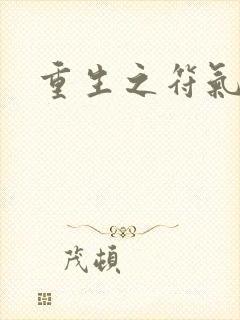 重生之符氣
茂頓